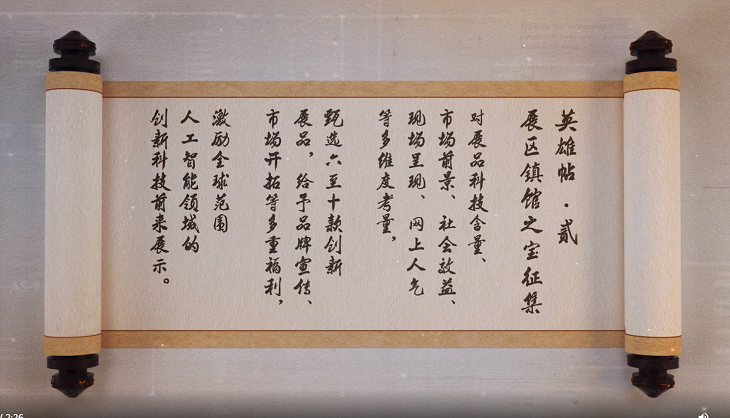 英雄帖·贰
展区镇馆之宝征集
对展品科技含量、
市场前景、社会效益、
现场呈现、网上人气
等多维度考量，
甄选六至十款创新
展品，给予品牌宣传、
市场开拓等多重福利，
激励全球范围
人工智能领域的
创新科技前来展示。
2:26